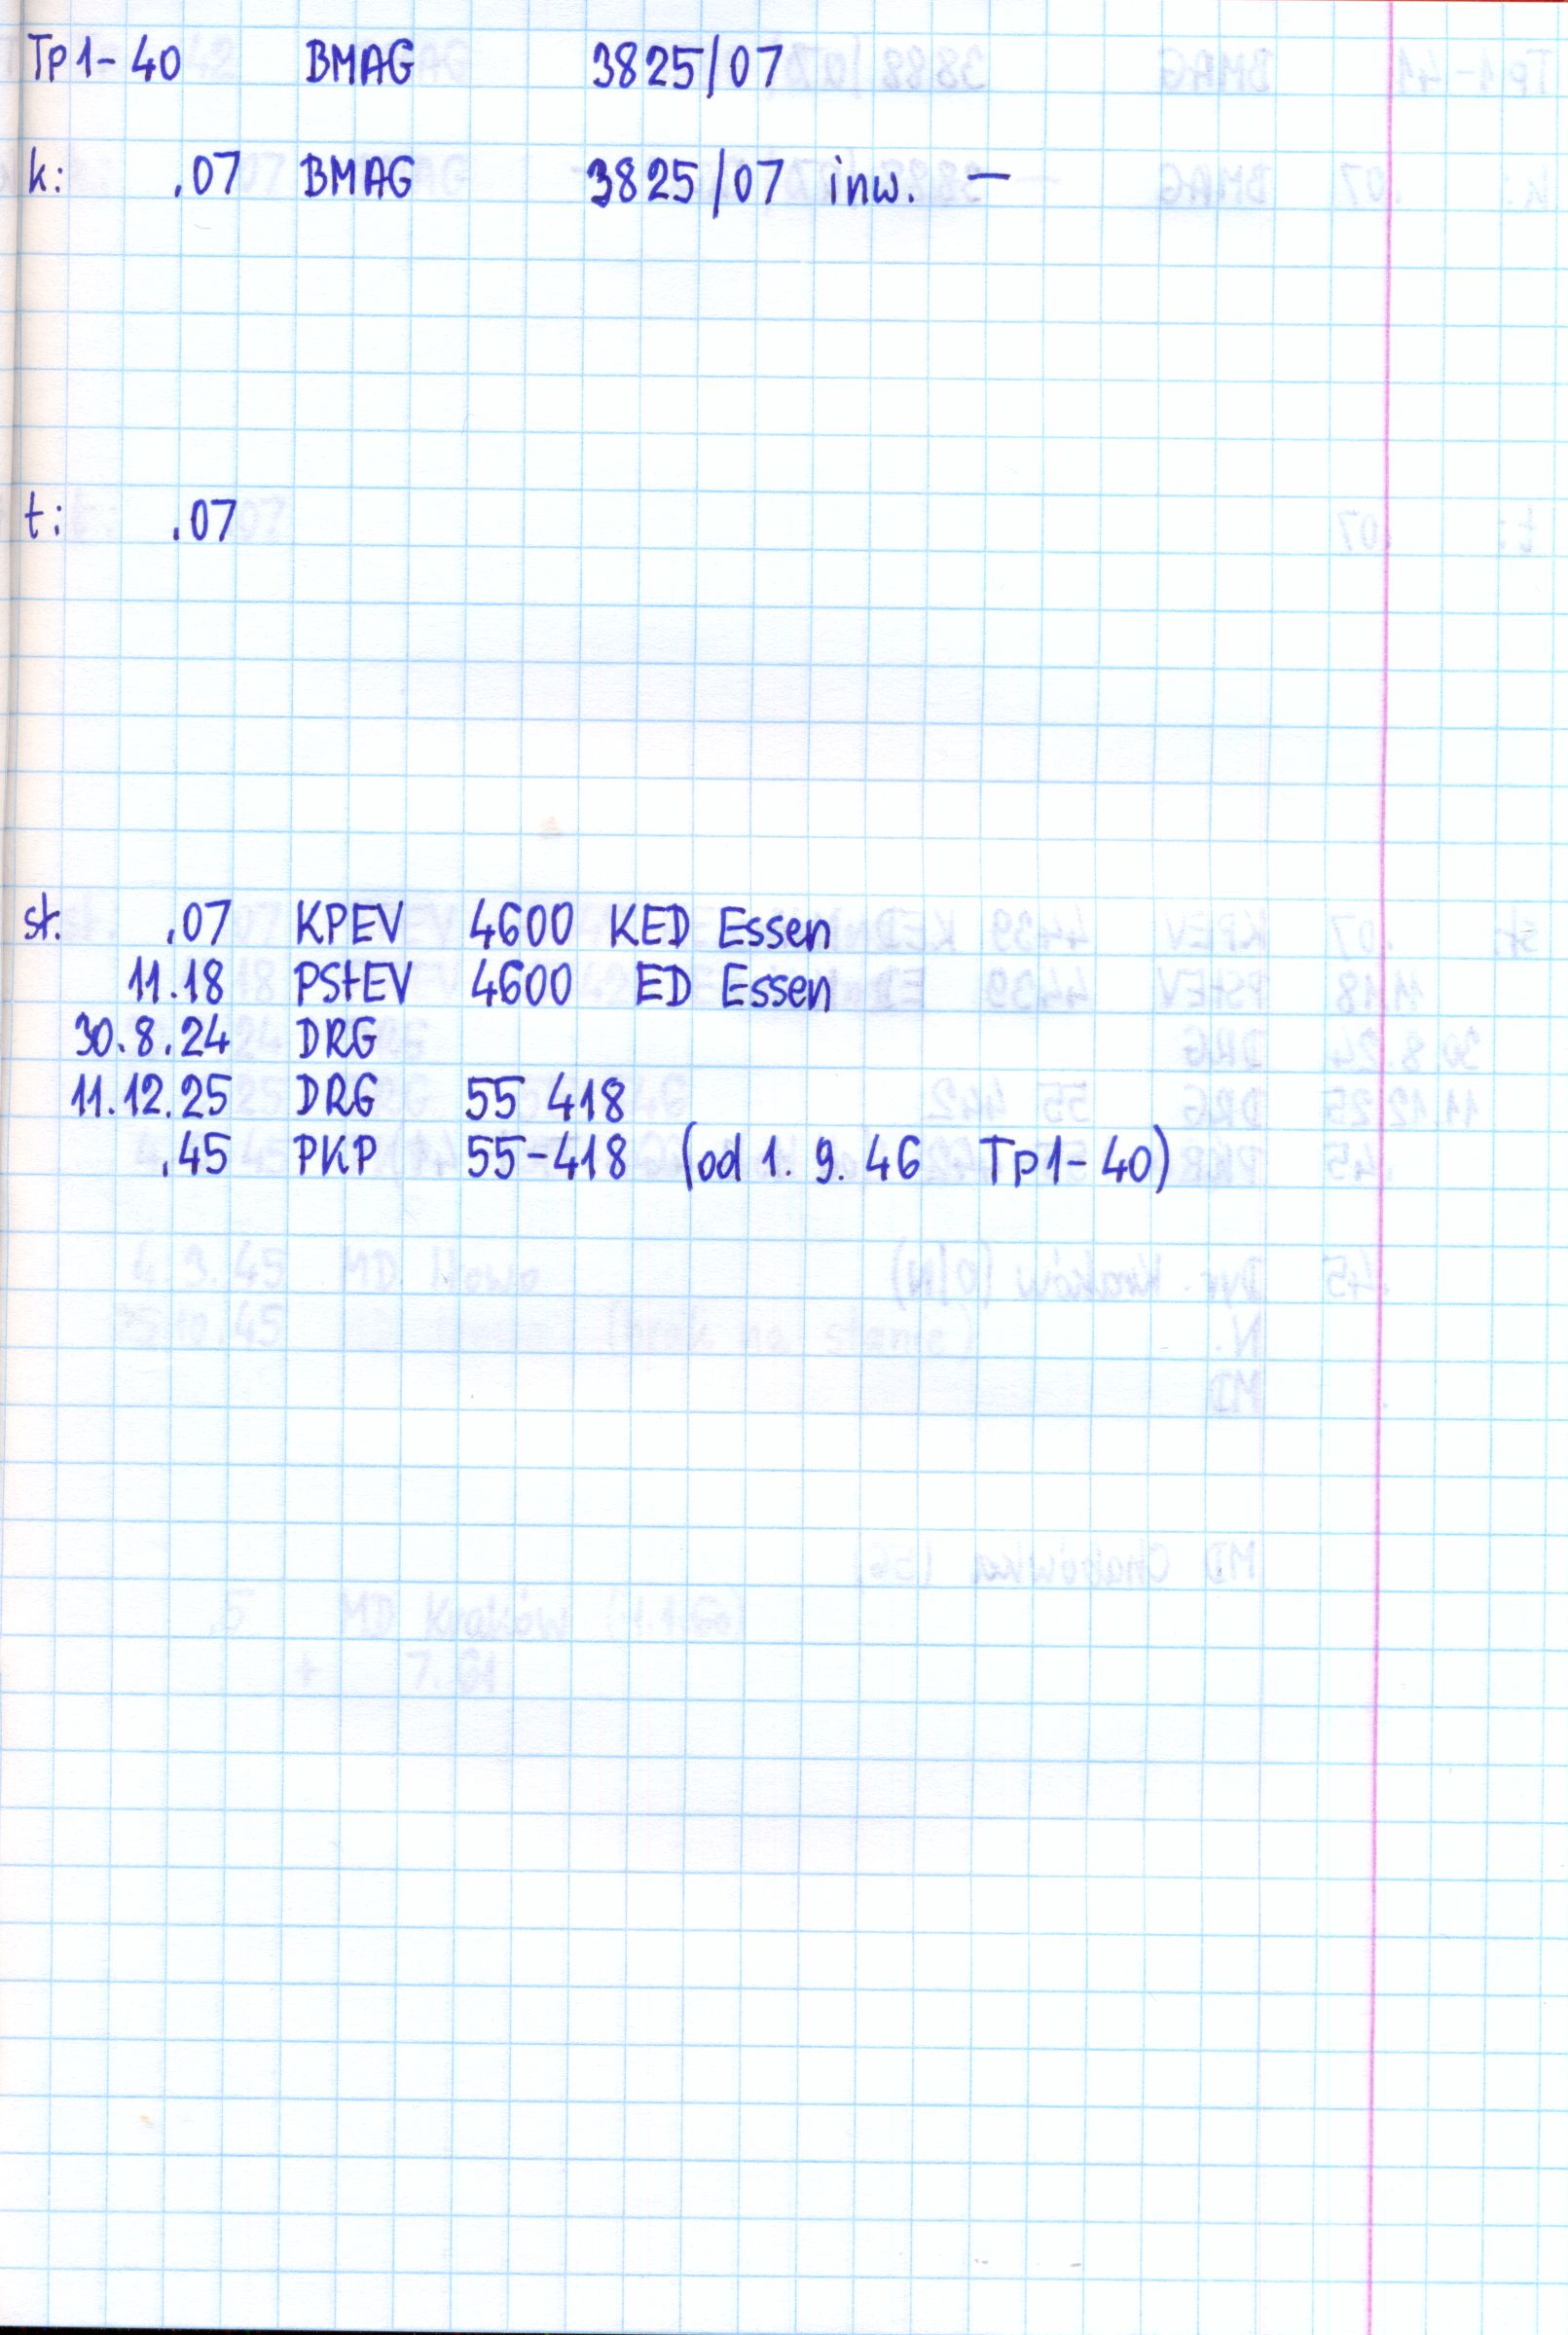 Tp1-40 BMAG 3825/07
k: .07 BMAG 3825/07 inw. —
t: .07
st. .07 KPEV 4600 KED Essen
11.18 PStEV 4600 ED Essen
30.8.24 DRG
11.12.25 DRG 55 418
.45 PKP 55-418 (od 1.9.46 Tp1-40)